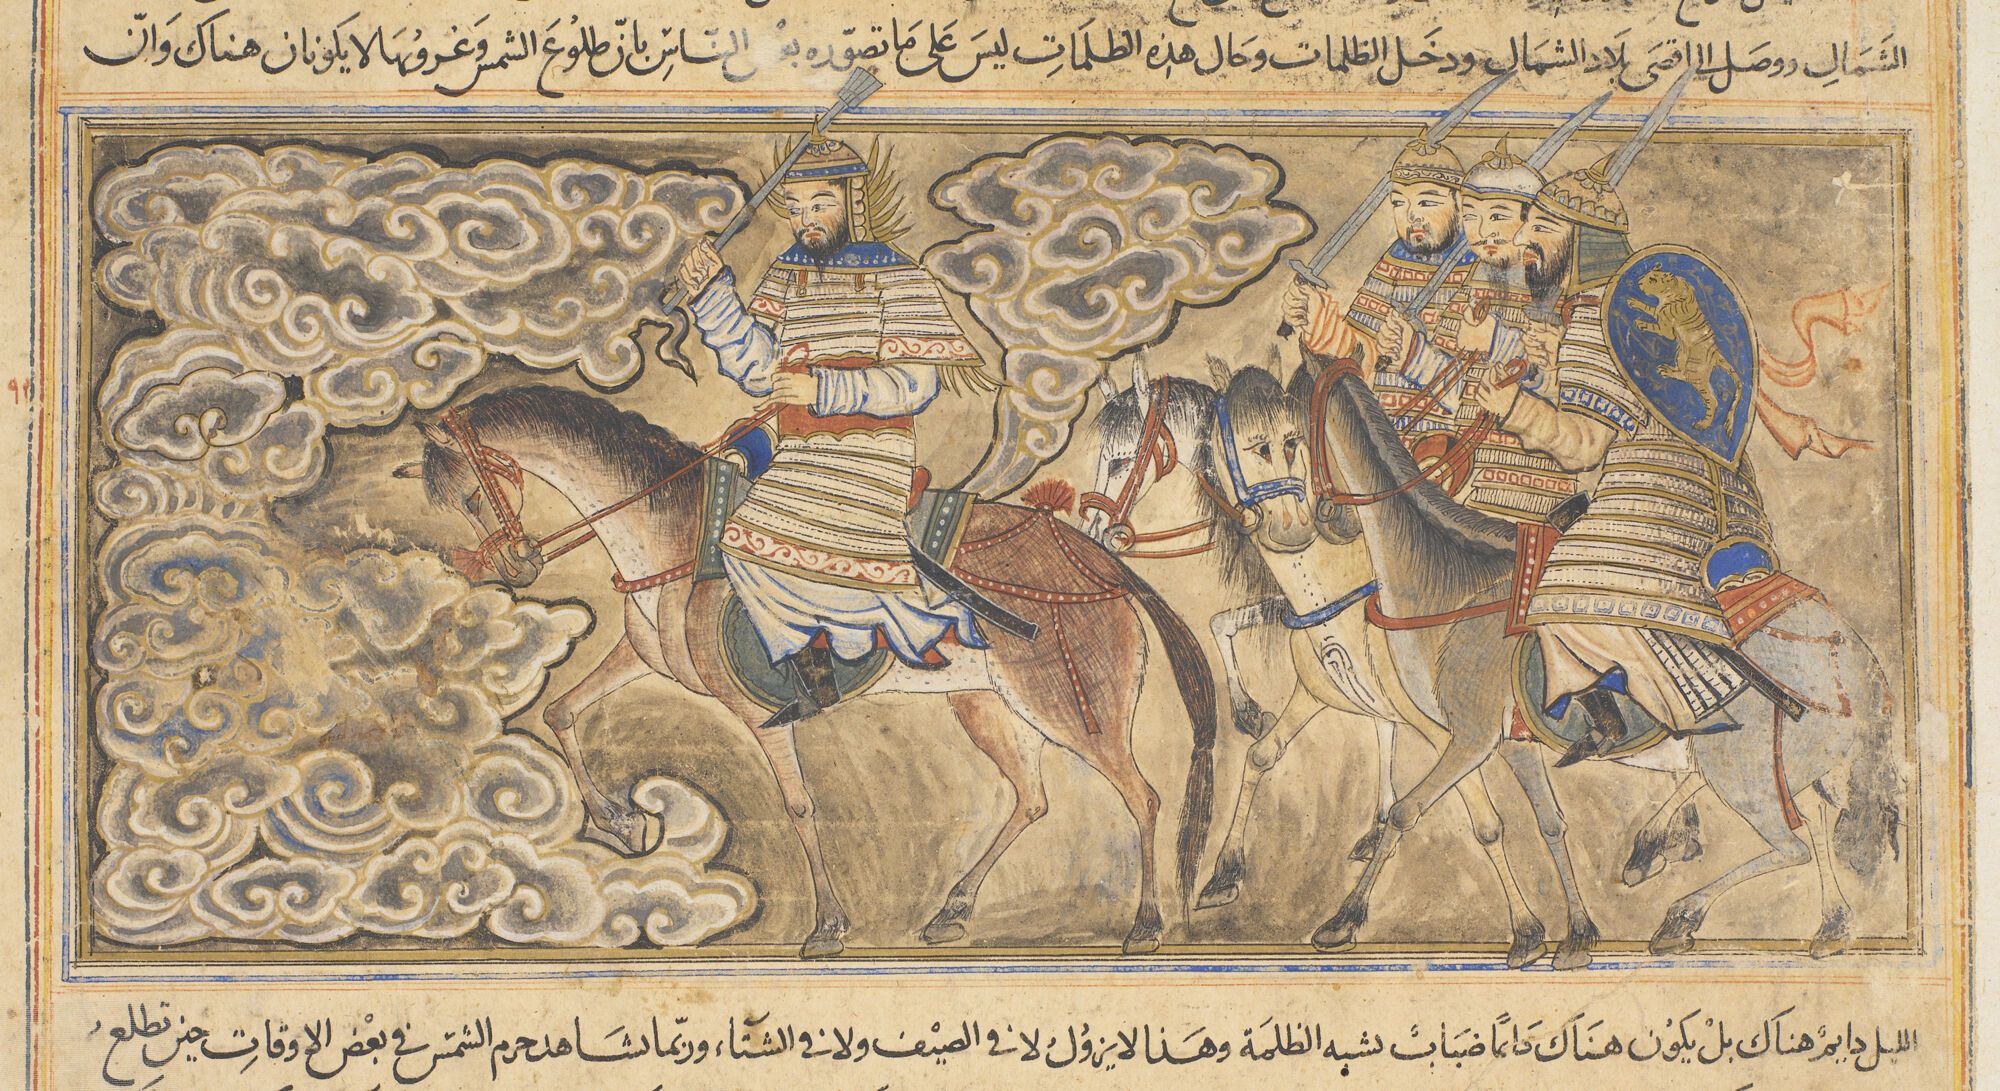 الشَمَالِ ووصَل الى اقصَى بلاد الشمال ودخَل الظلمات وحَال هذِه الظلمَاتِ ليسَ عَلى مَا تصوّره بعْض النّاسِ بانّ طلوُع الشمس وغروبهَا لا يكونان هناك وَانّ
٩٢
الليل دايمٌ هناك بلْ يكوُن هنَاك دَائمًا ضبَابٌ يشبه الظلمَة وهَذا لا يزوُل لا في الصيْف ولا في الشتَاء وربّما يشَاهد جرم الشمْس في بعْض الاوقاتِ حين تطلعُ